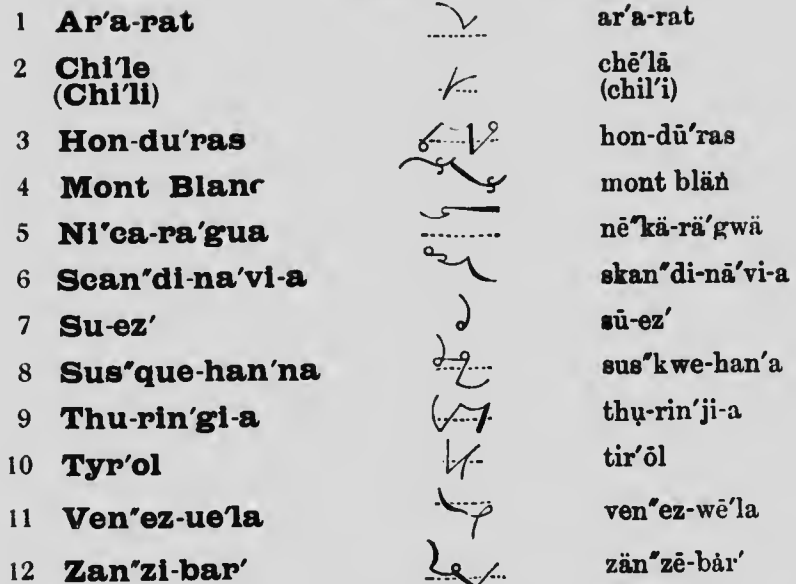 1 Ar′a-rat ar′a-rat
2 Chi′le chē′lā
(Chi′li) (chil′i)
3 Hon-du′ras hon-dū′ras
4 Mont Blanc mont bläṅ
5 Ni″ca-ra′gua nē″kä-rä′gwä
6 Scan″di-na′vi-a skan″di-nā′vi-a
7 Su-ez′ sū-ez′
8 Sus″que-han′na sus″kwe-han′a
9 Thu-rin′gi-a thụ-rin′ji-a
10 Tyr′ol tir′ōl
11 Ven″ez-ue′la ven″ez-wē′la
12 Zan″zi-bar′ zän″zē-bȧr′